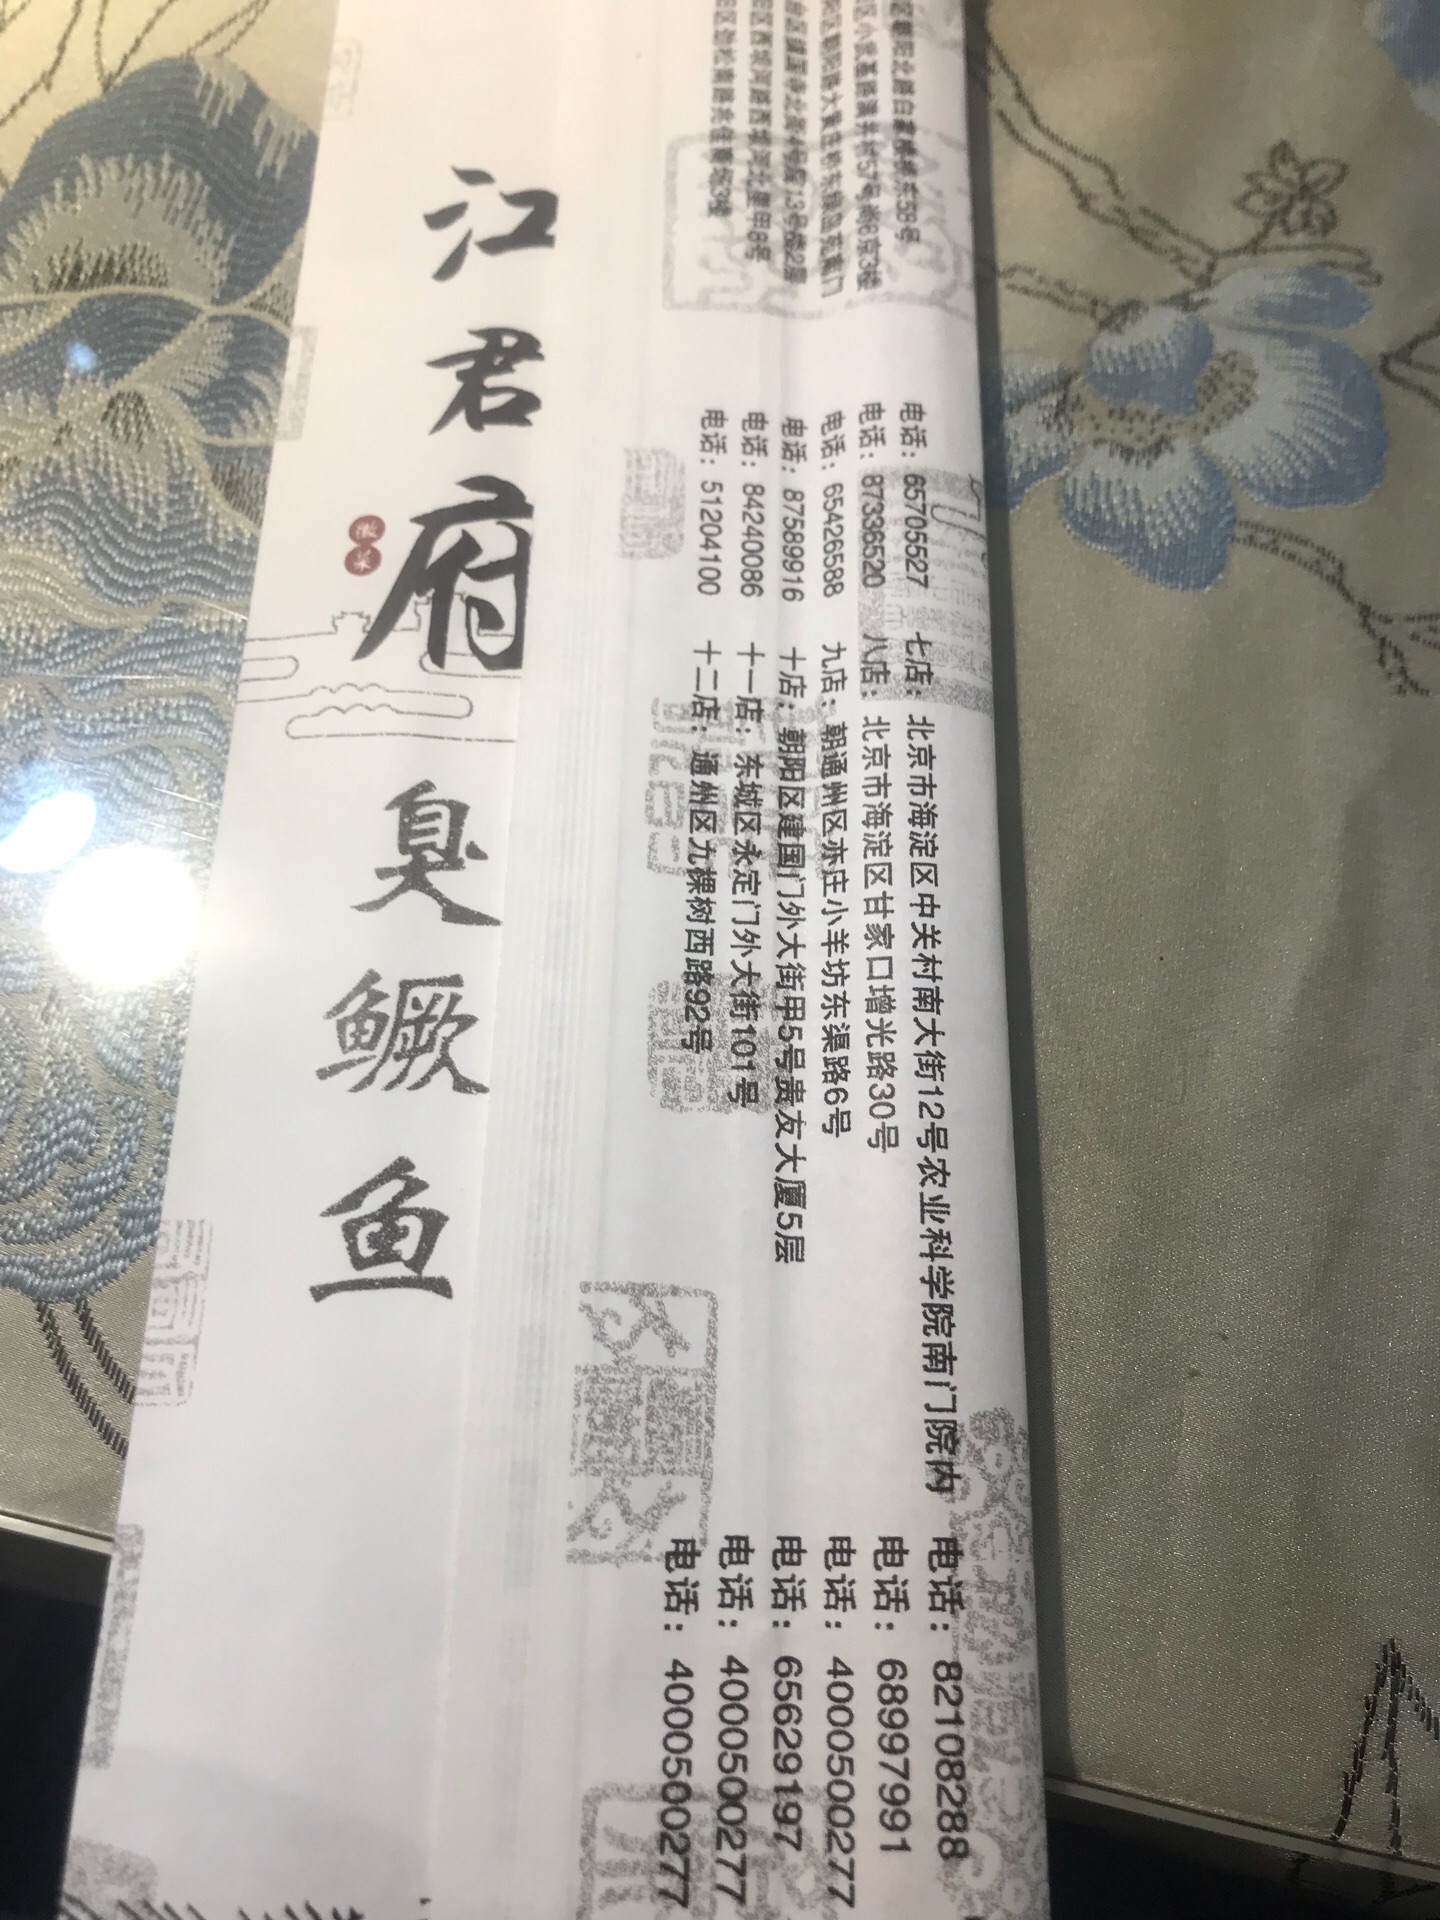 江君府
徽菜
臭鳜鱼
区朝阳北路白家楼桥东58号
电话：65705527
七店：北京市海淀区中关村南大街12号农业科学院南门院内
电话：82108288
电话：87336520
八店：北京市海淀区甘家口增光路30号
电话：68997991
电话：65426588
九店：朝通州区亦庄小羊坊东渠路6号
电话：4000500277
电话：87589916
十店：朝阳区建国门外大街甲5号贵友大厦5层
电话：65629197
区西坝河路西坝河北里甲8号
电话：84240086
十一店：东城区永定门外大街101号
电话：4000500277
电话：51204100
十二店：通州区九棵树西路92号
电话：4000500277